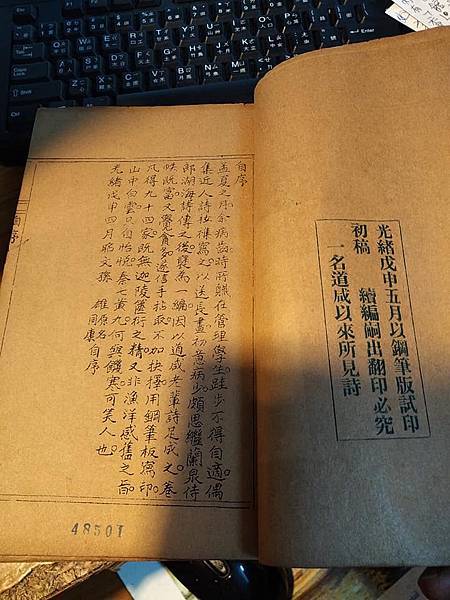 光緒戊申五月以鋼筆版試印
初稿 續編嗣出翻印必究
一名道咸以來所見詩
自序
孟夏之月余病齒時所職在管理學生跬步不得自適偶
集近人詩 寫之以送長晝初 病少頗思繼蘭泉侍
郎湖海詩傳之後裒為一編因以道咸老輩詩足成之卷
帙既富又覺貪多遂信手拈取不加抉擇用鋼筆板寫印
凡得九十四家既無迦陵篋衍之精又非漁洋感舊之旨
山中白雲只自怡悅秦七黃九何與饑寒可笑人也
光緒戊申四月昭文孫 雄原名同康自序
自序
48501